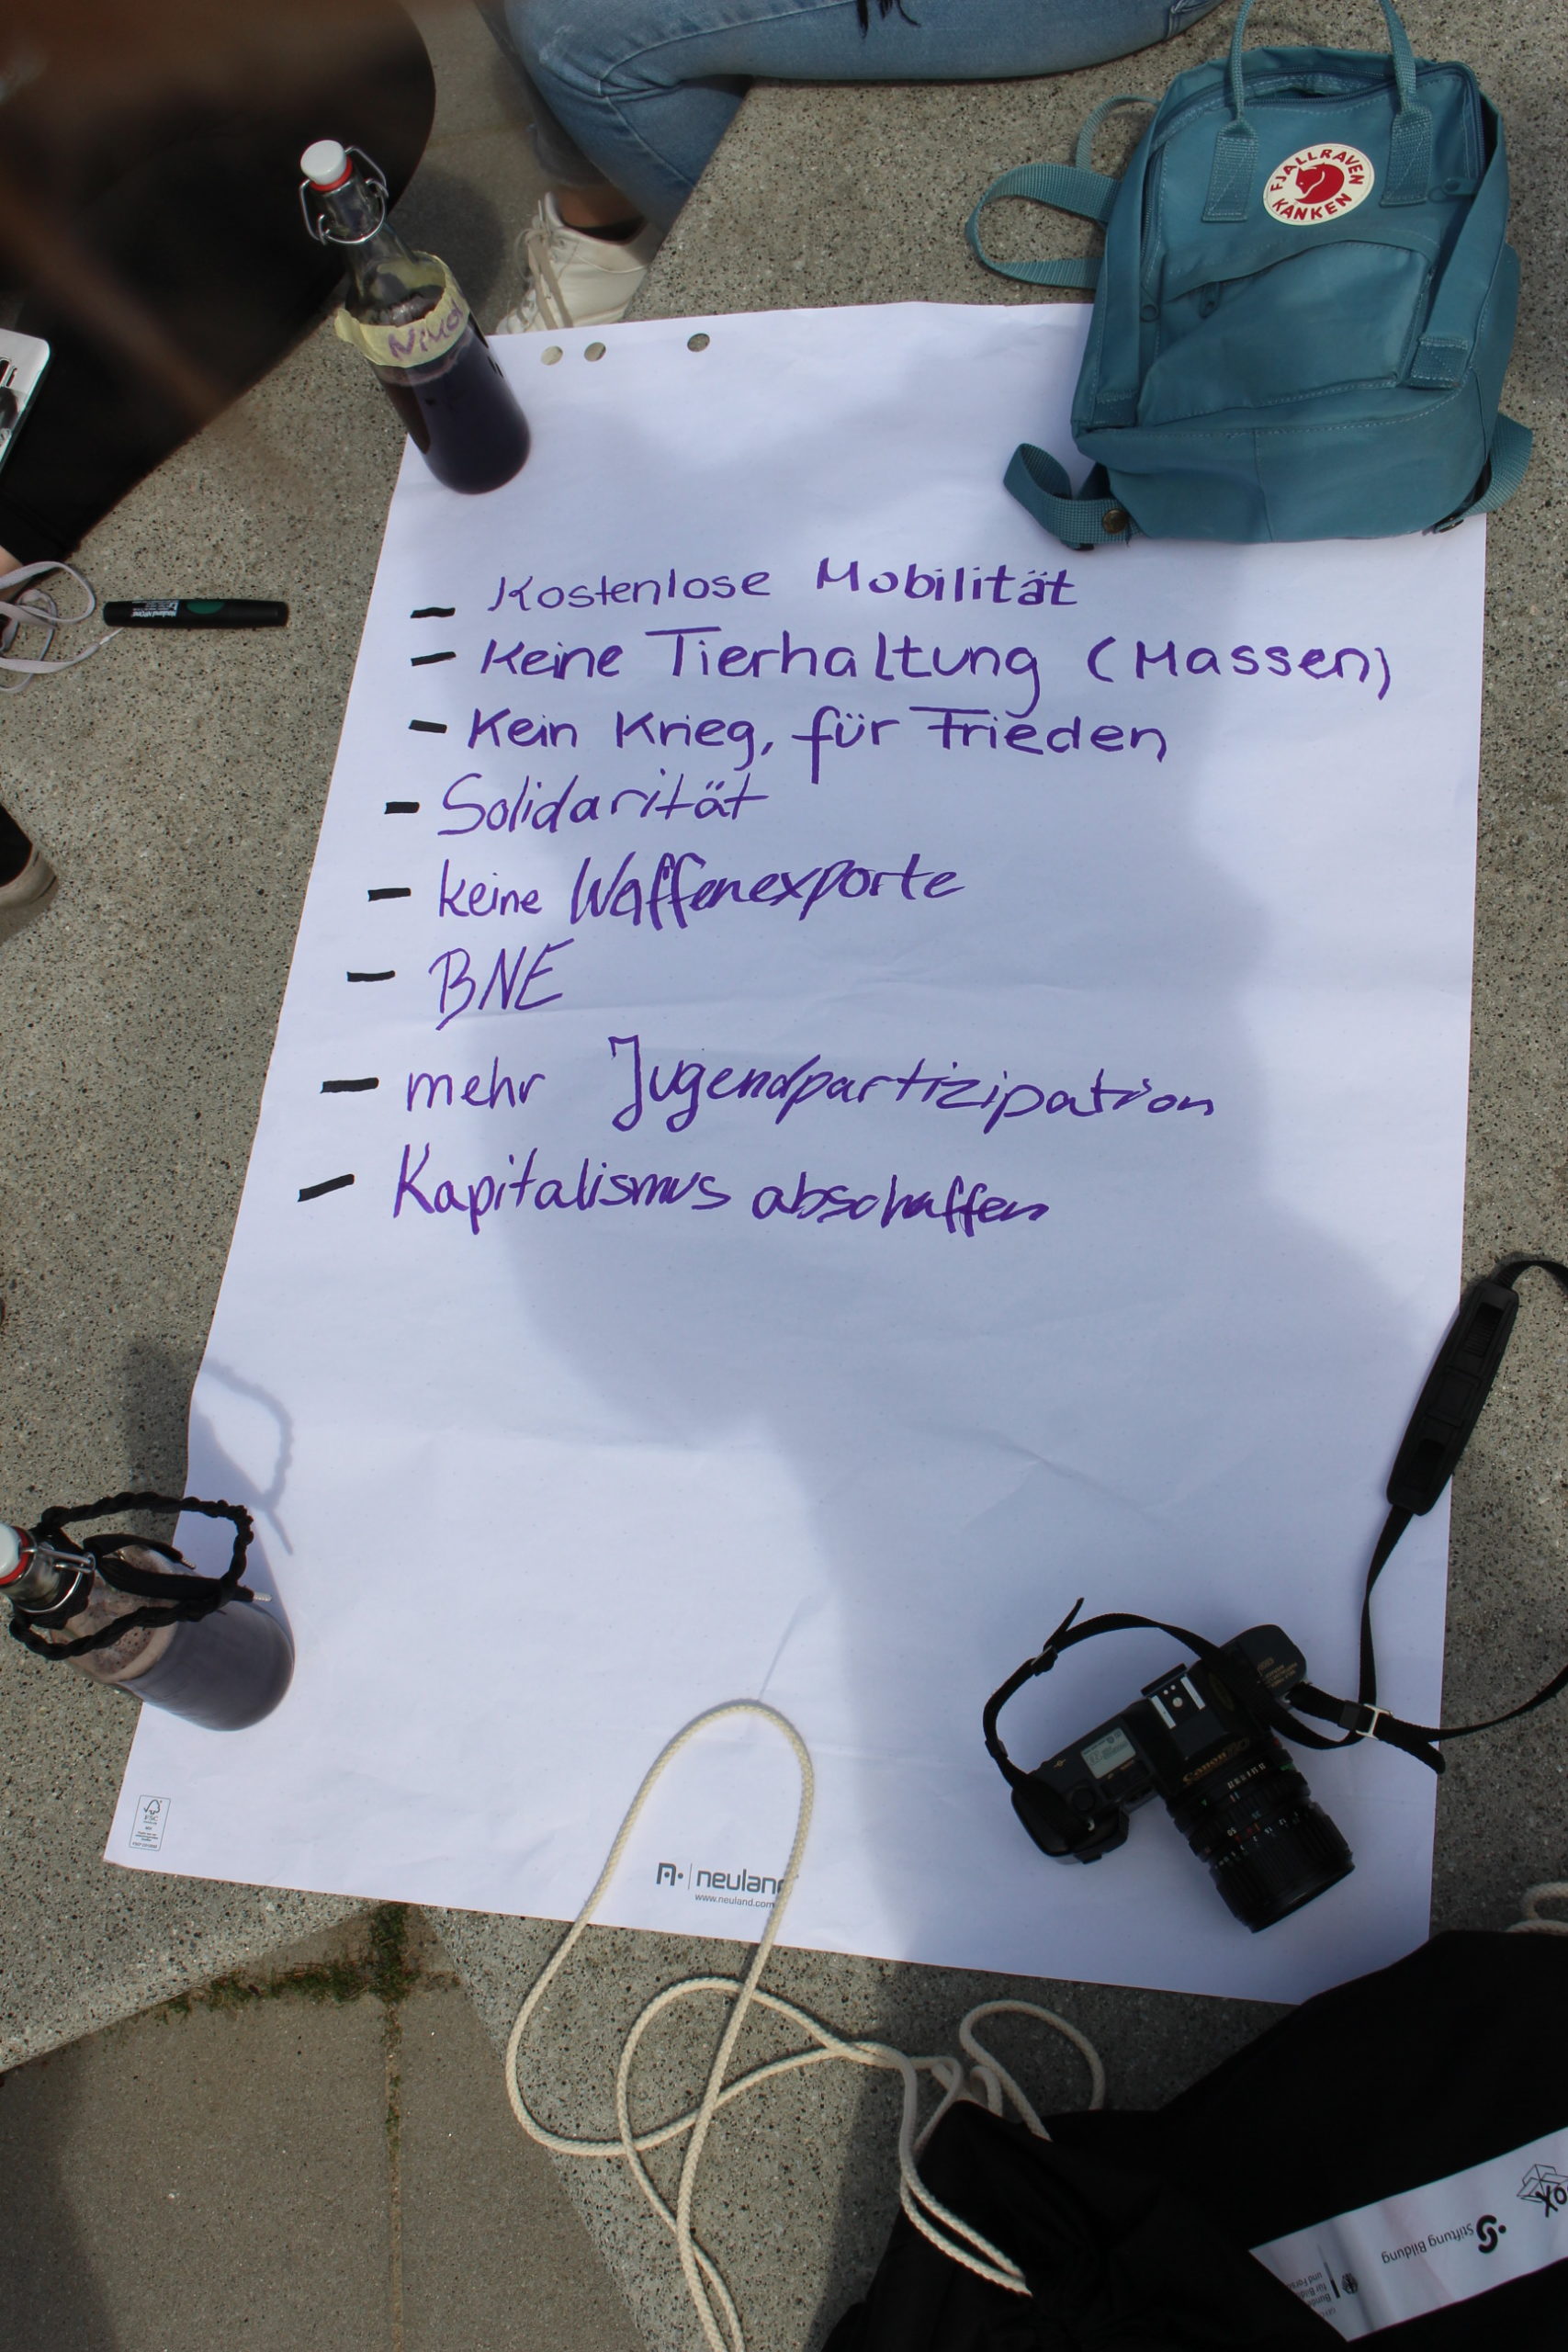 FJÄLLRÄVEN
KÅNKEN
– Kostenlose Mobilität
– Keine Tierhaltung (Massen)
– Kein Krieg, für Frieden
– Solidarität
– keine Waffenexporte
– BNE
– mehr Jugendpartizipation
– Kapitalismus abschaffen
FSC
neuland
www.neuland.com
Canon
Stiftung Bildung